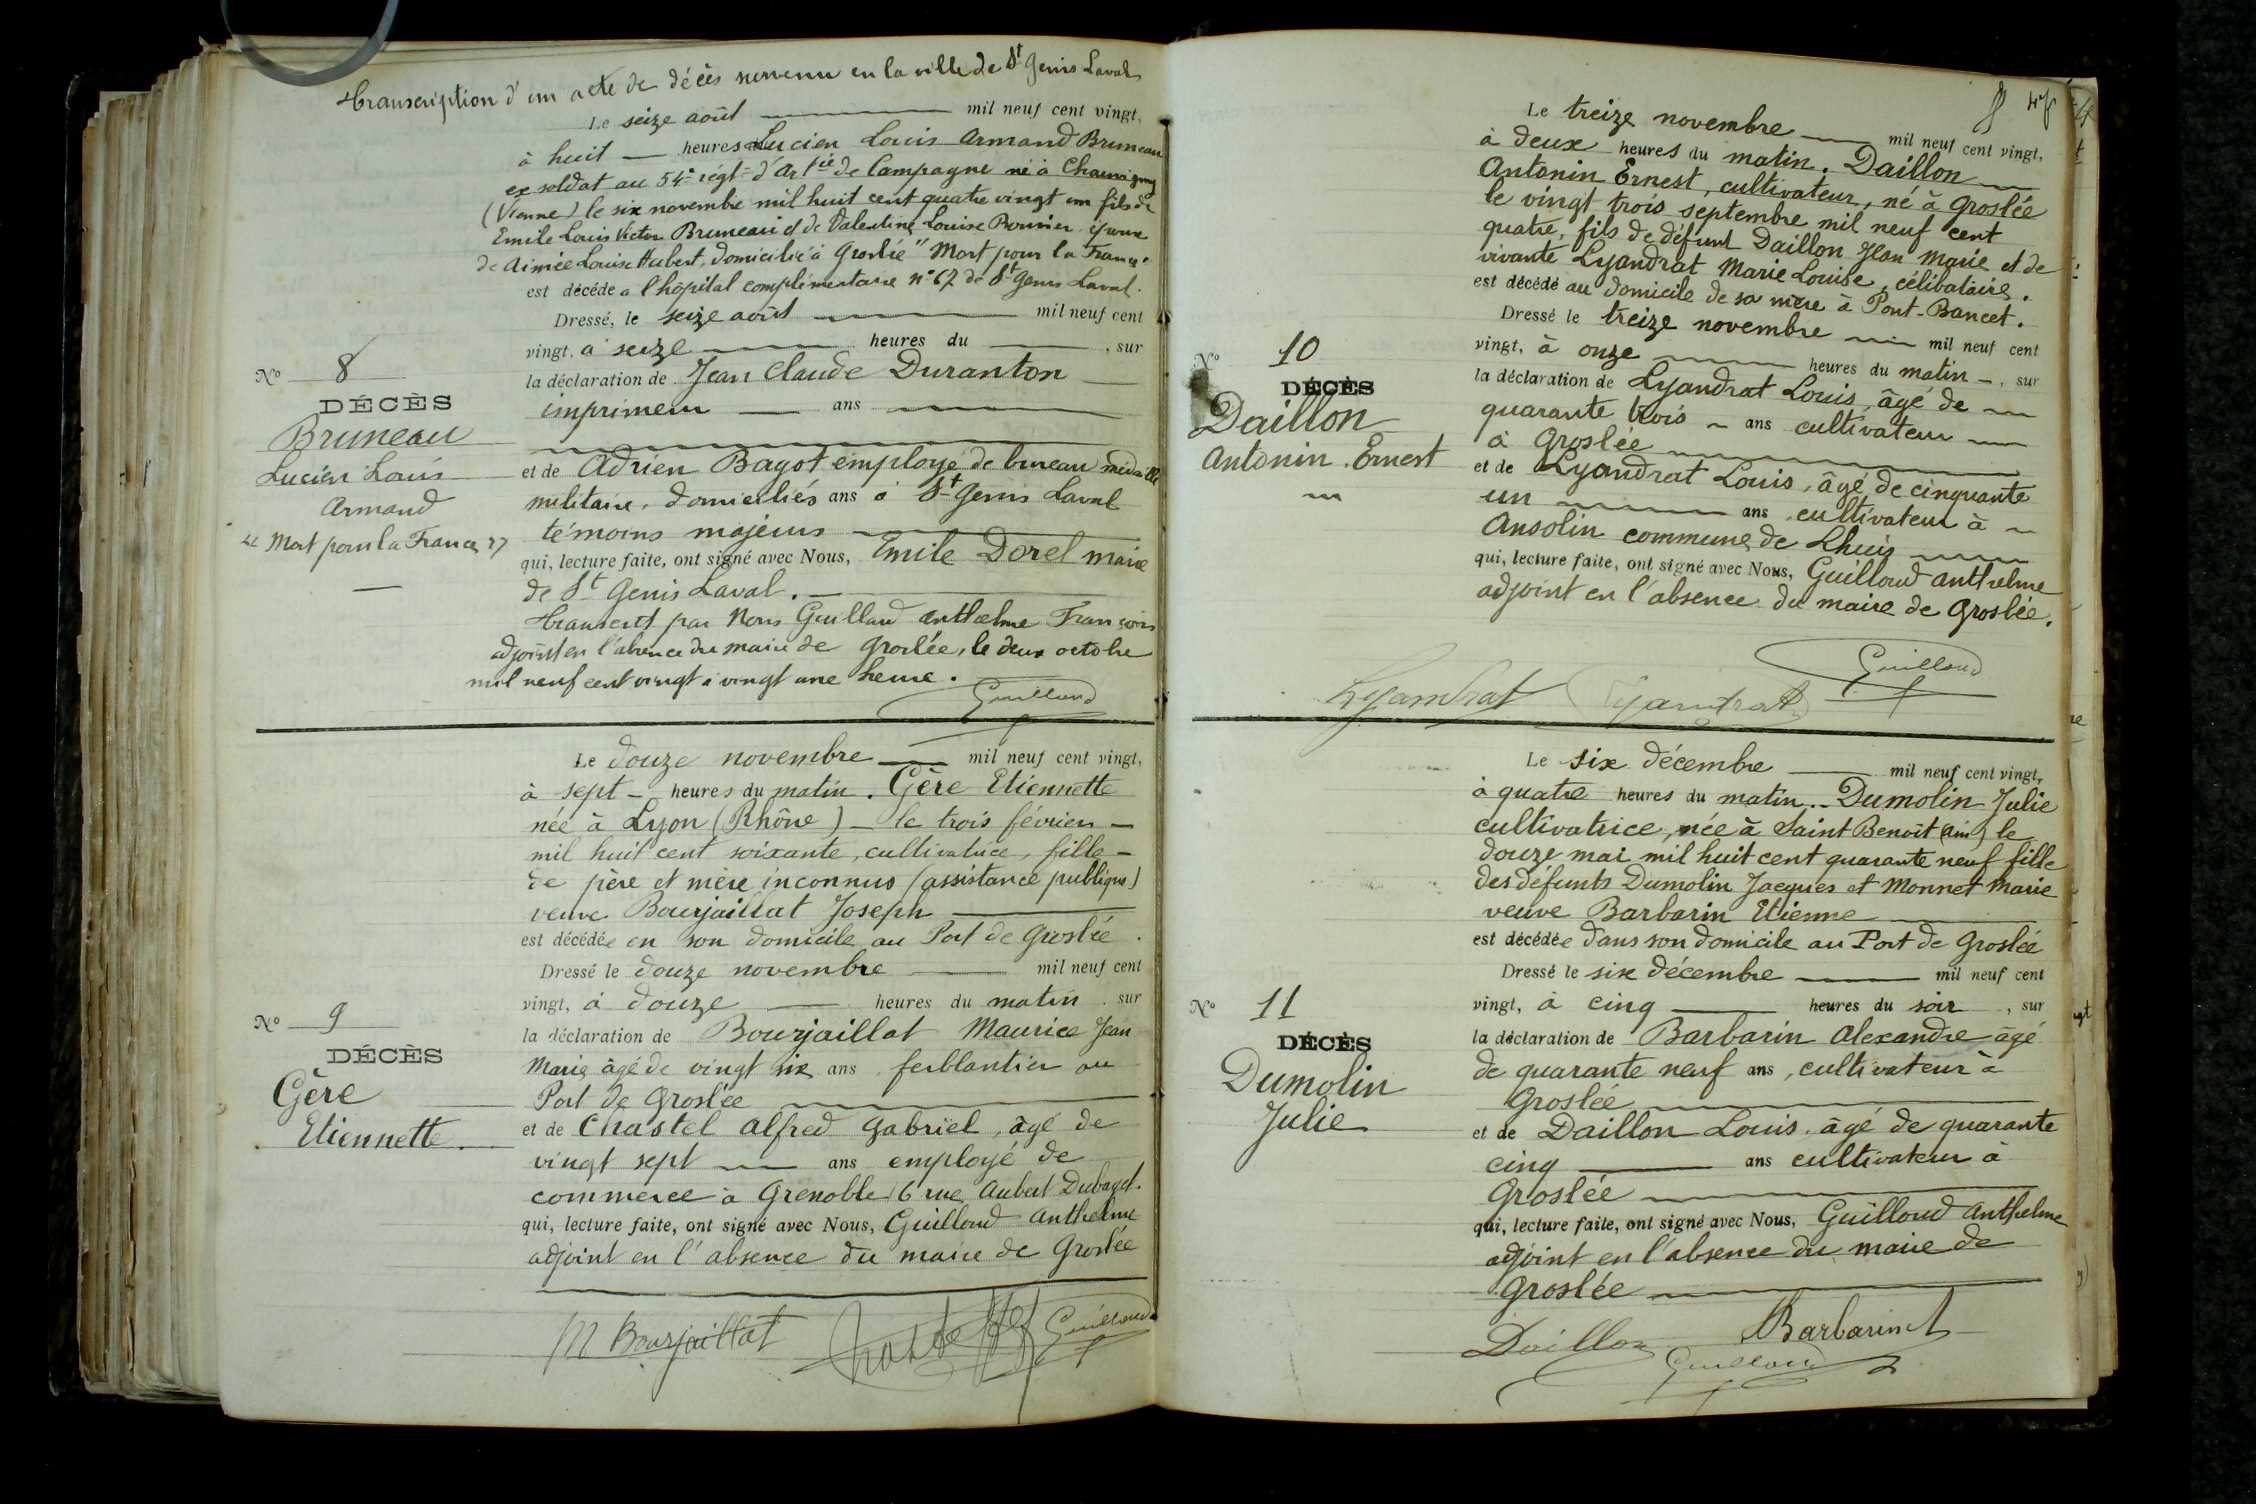 Transcription d'un acte de décès survenu en la ville de St Genis Laval
Le seize août mil neuf cent vingt,
à huit heures Lucien Louis Armand Bruneau
ex soldat au 54e régt d'Artie de Campagne né à Chauvigny
(Vienne) le six novembre mil huit cent quatre vingt un fils de
Emile Louis Victor Bruneau et de Valentine Louise époux
de Aimée Louise Hubert, domicilié à Groslée "Mort pour la France"
est décédé a l'hôpital complémentaire n° 67 de St Genis Laval.
Dressé, le seize août mil neuf cent
vingt, à seize heures du , sur
la déclaration de Jean Claude Duranton
imprimeur ans
et de Adrien Bagot employé de bureau médaille
militaire, domiciliés ans à St Genis Laval
témoins majeurs
qui, lecture faite, ont signé avec Nous, Emile Dorel maire
de St Genis Laval.
Transcrit par Nous Guilloud Anthelme François
adjoint en l'absence du maire de Groslée, le deux octobre
mil neuf cent vingt à vingt une heure.
Guilloud
No 8
DÉCÈS
Bruneau
Lucien Louis
Armand
"Mort pour la France"
Le douze novembre mil neuf cent vingt,
à sept heures du matin. Gère Etiennette
née à Lyon (Rhône) le trois février
mil huit cent soixante, cultivatrice, fille
de père et mère inconnus (assistance publique)
veuve Bourjaillat Joseph
est décédée en son domicile au Port de Groslée.
Dressé le douze novembre mil neuf cent
vingt, à douze heures du matin, sur
la déclaration de Bourjaillat Maurice Jean
Marie âgé de vingt six ans, ferblantier au
Port de Groslée
et de Chastel Alfred Gabriel, âgé de
vingt sept ans employé de
commerce à Grenoble 6 rue Aubert Dubayet.
qui, lecture faite, ont signé avec Nous, Guilloud Anthelme
adjoint en l'absence du maire de Groslée
M Bourjaillat Guilloud
No 9
DÉCÈS
Gère
Etiennette
Le treize novembre mil neuf cent vingt,
à deux heures du matin. Daillon
Antonin Ernest, cultivateur, né à Groslée
le vingt trois septembre mil neuf cent
quatre, fils de défunt Daillon Jean Marie et de
vivante Lyandrat Marie Louise, célibataire.
est décédé au domicile de sa mère à Pont-Bancet.
Dressé le treize novembre mil neuf cent
vingt, à onze heures du matin, sur
la déclaration de Lyandrat Louis, âgé de
quarante trois ans cultivateur
à Groslée
et de Lyandrat Louis, âgé de cinquante
un ans, cultivateur à
Ansolin commune de Lhuis
qui, lecture faite, ont signé avec Nous, Guilloud Anthelme
adjoint en l'absence du maire de Groslée.
Lyandrat Lyandrat Guilloud
No 10
DÉCÈS
Daillon
Antonin Ernest
Le six décembre mil neuf cent vingt,
à quatre heures du matin. Dumolin Julie
cultivatrice, née à Saint Benoit (Ain) le
douze mai mil huit cent quarante neuf fille
des défunts Dumolin Jacques et Monnet Marie
veuve Barbarin Etienne
est décédée dans son domicile au Port de Groslée
Dressé le six décembre mil neuf cent
vingt, à cinq heures du soir, sur
la déclaration de Barbarin Alexandre âgé
de quarante neuf ans, cultivateur à
Groslée
et de Daillon Louis, âgé de quarante
cinq ans cultivateur à
Groslée
qui, lecture faite, ont signé avec Nous, Guilloud Anthelme
adjoint en l'absence du maire de
Groslée
Daillon Barbarin A
Guilloud
No 11
DÉCÈS
Dumolin
Julie